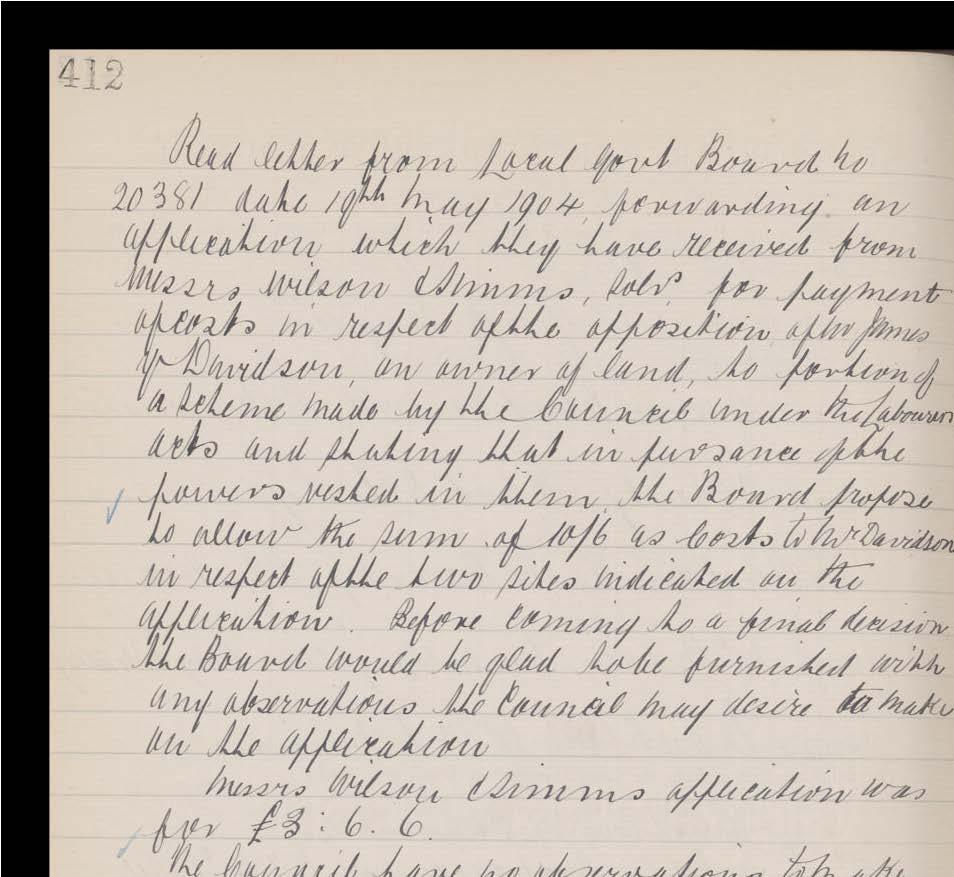 412
Read letter from Local Govt Board No
20381 date 19th May 1904, forwarding an
application which they have received from
Messrs Wilson & Simms, Solrs, for payment
of costs in respect of the opposition of Mr James
Davidson, an owner of land, to portion of
a scheme made by the Council under the Labourers
acts and stating that in pursance of the
powers vested in them, the Board propose
to allow the sum of 10/6 as Costs to Mr Davidson
in respect of the two sites indicated on the
application. Before coming to a final decision
the Board would be glad to be furnished with
any observations the Council may desire to make
on the application
Messrs Wilson & Simms application was
for £3 : 6. 6.
The Council have no observations to make